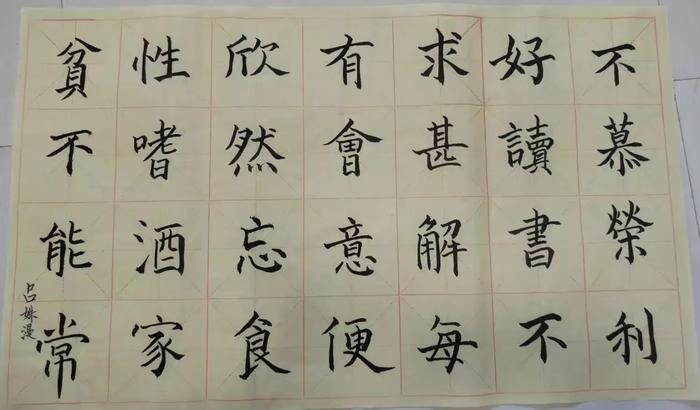 不慕榮利
好讀書不
求甚解每
有會意便
欣然忘食
性嗜酒家
貧不能常
吕姝漫